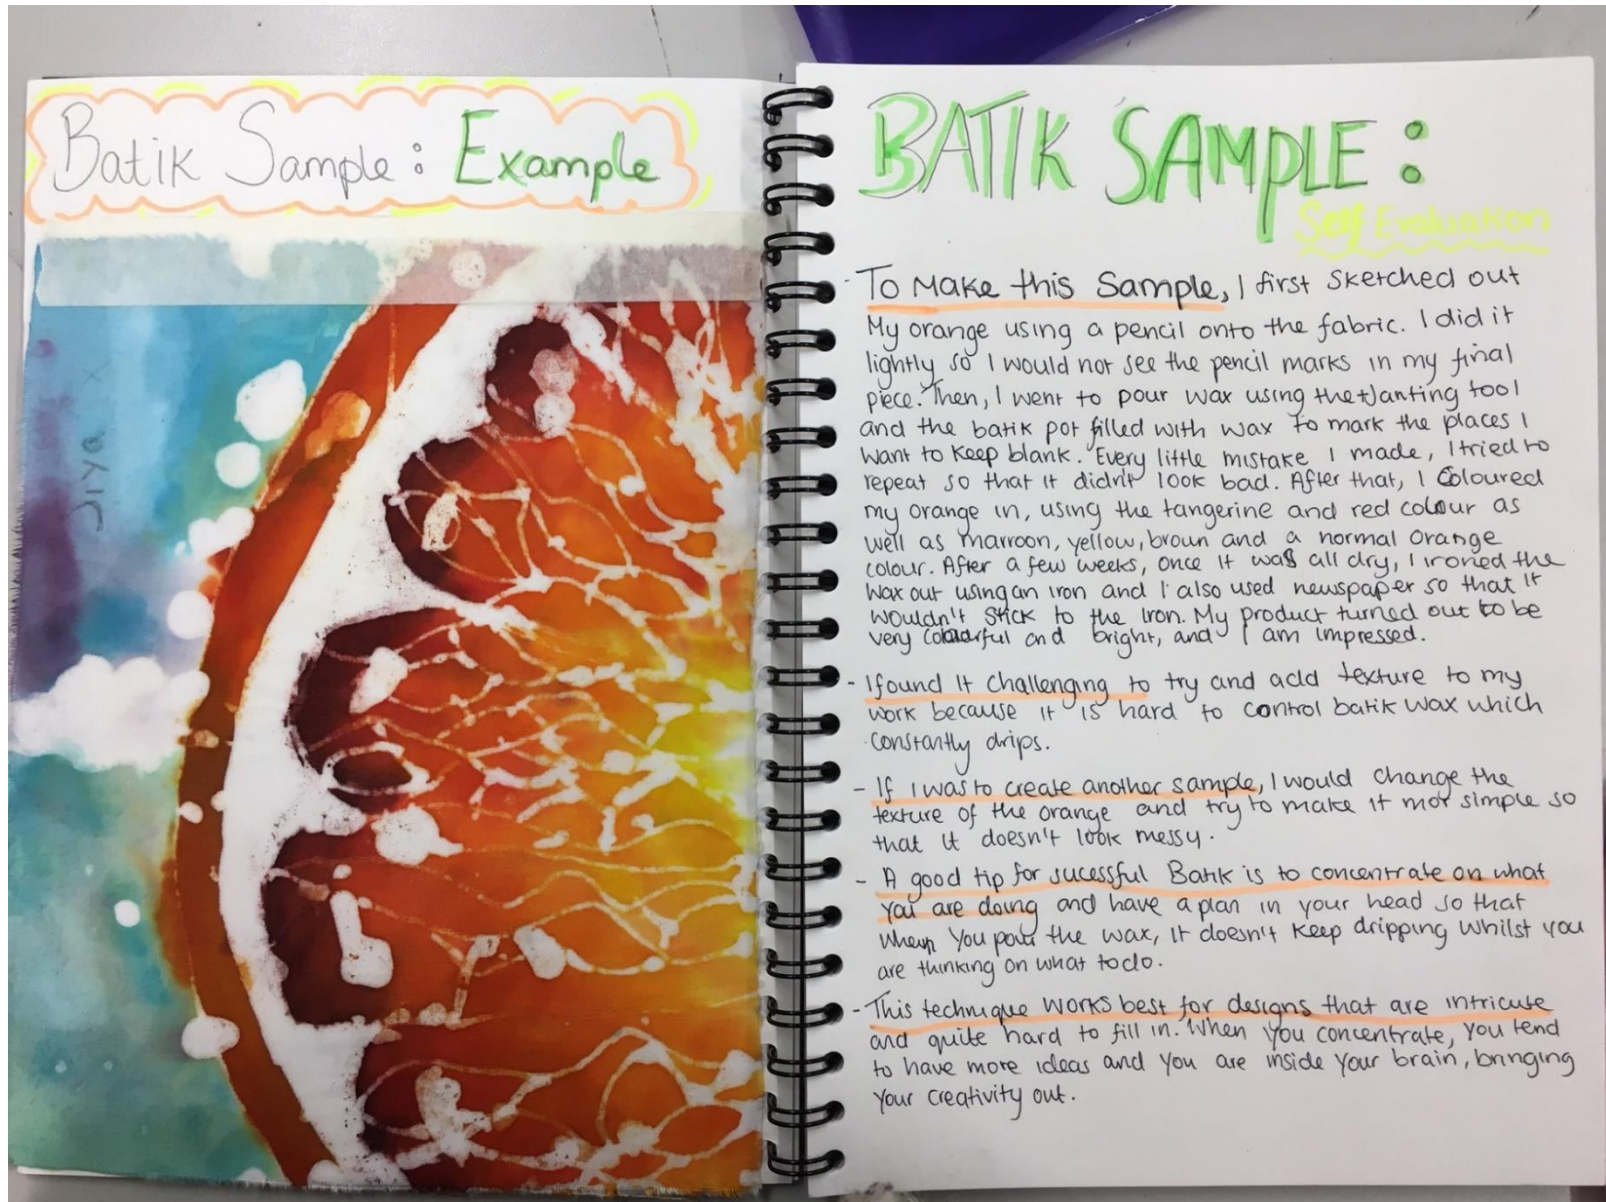 Batik Sample: Example
Jiya x
BATIK SAMPLE:
Self Evaluation
- To Make this Sample, I first sketched out
My orange using a pencil onto the fabric. I did it
lightly so I would not see the pencil marks in my final
piece. Then, I went to pour wax using the tJanting tool
and the batik pot filled with wax to mark the places I
want to keep blank. Every little mistake I made, I tried to
repeat so that it didn't look bad. After that, I coloured
my orange in, using the tangerine and red colour as
well as marroon, yellow, broun and a normal orange
colour. After a few weeks, once it was all dry, I ironed the
wax out using an iron and I also used newspaper so that it
wouldn't stick to the iron. My product turned out to be
very colourful and bright, and I am impressed.
- I found it challenging to try and add texture to my
work because it is hard to control batik wax which
constantly drips.
- If I was to create another sample, I would change the
texture of the orange and try to make it mor simple so
that it doesn't look messy.
- A good tip for sucessful Batik is to concentrate on what
you are doing and have a plan in your head so that
when you pour the wax, it doesn't keep dripping whilst you
are thinking on what to do.
- This technique works best for designs that are intricute
and quite hard to fill in. When you concentrate, you tend
to have more ideas and you are inside your brain, bringing
your creativity out.